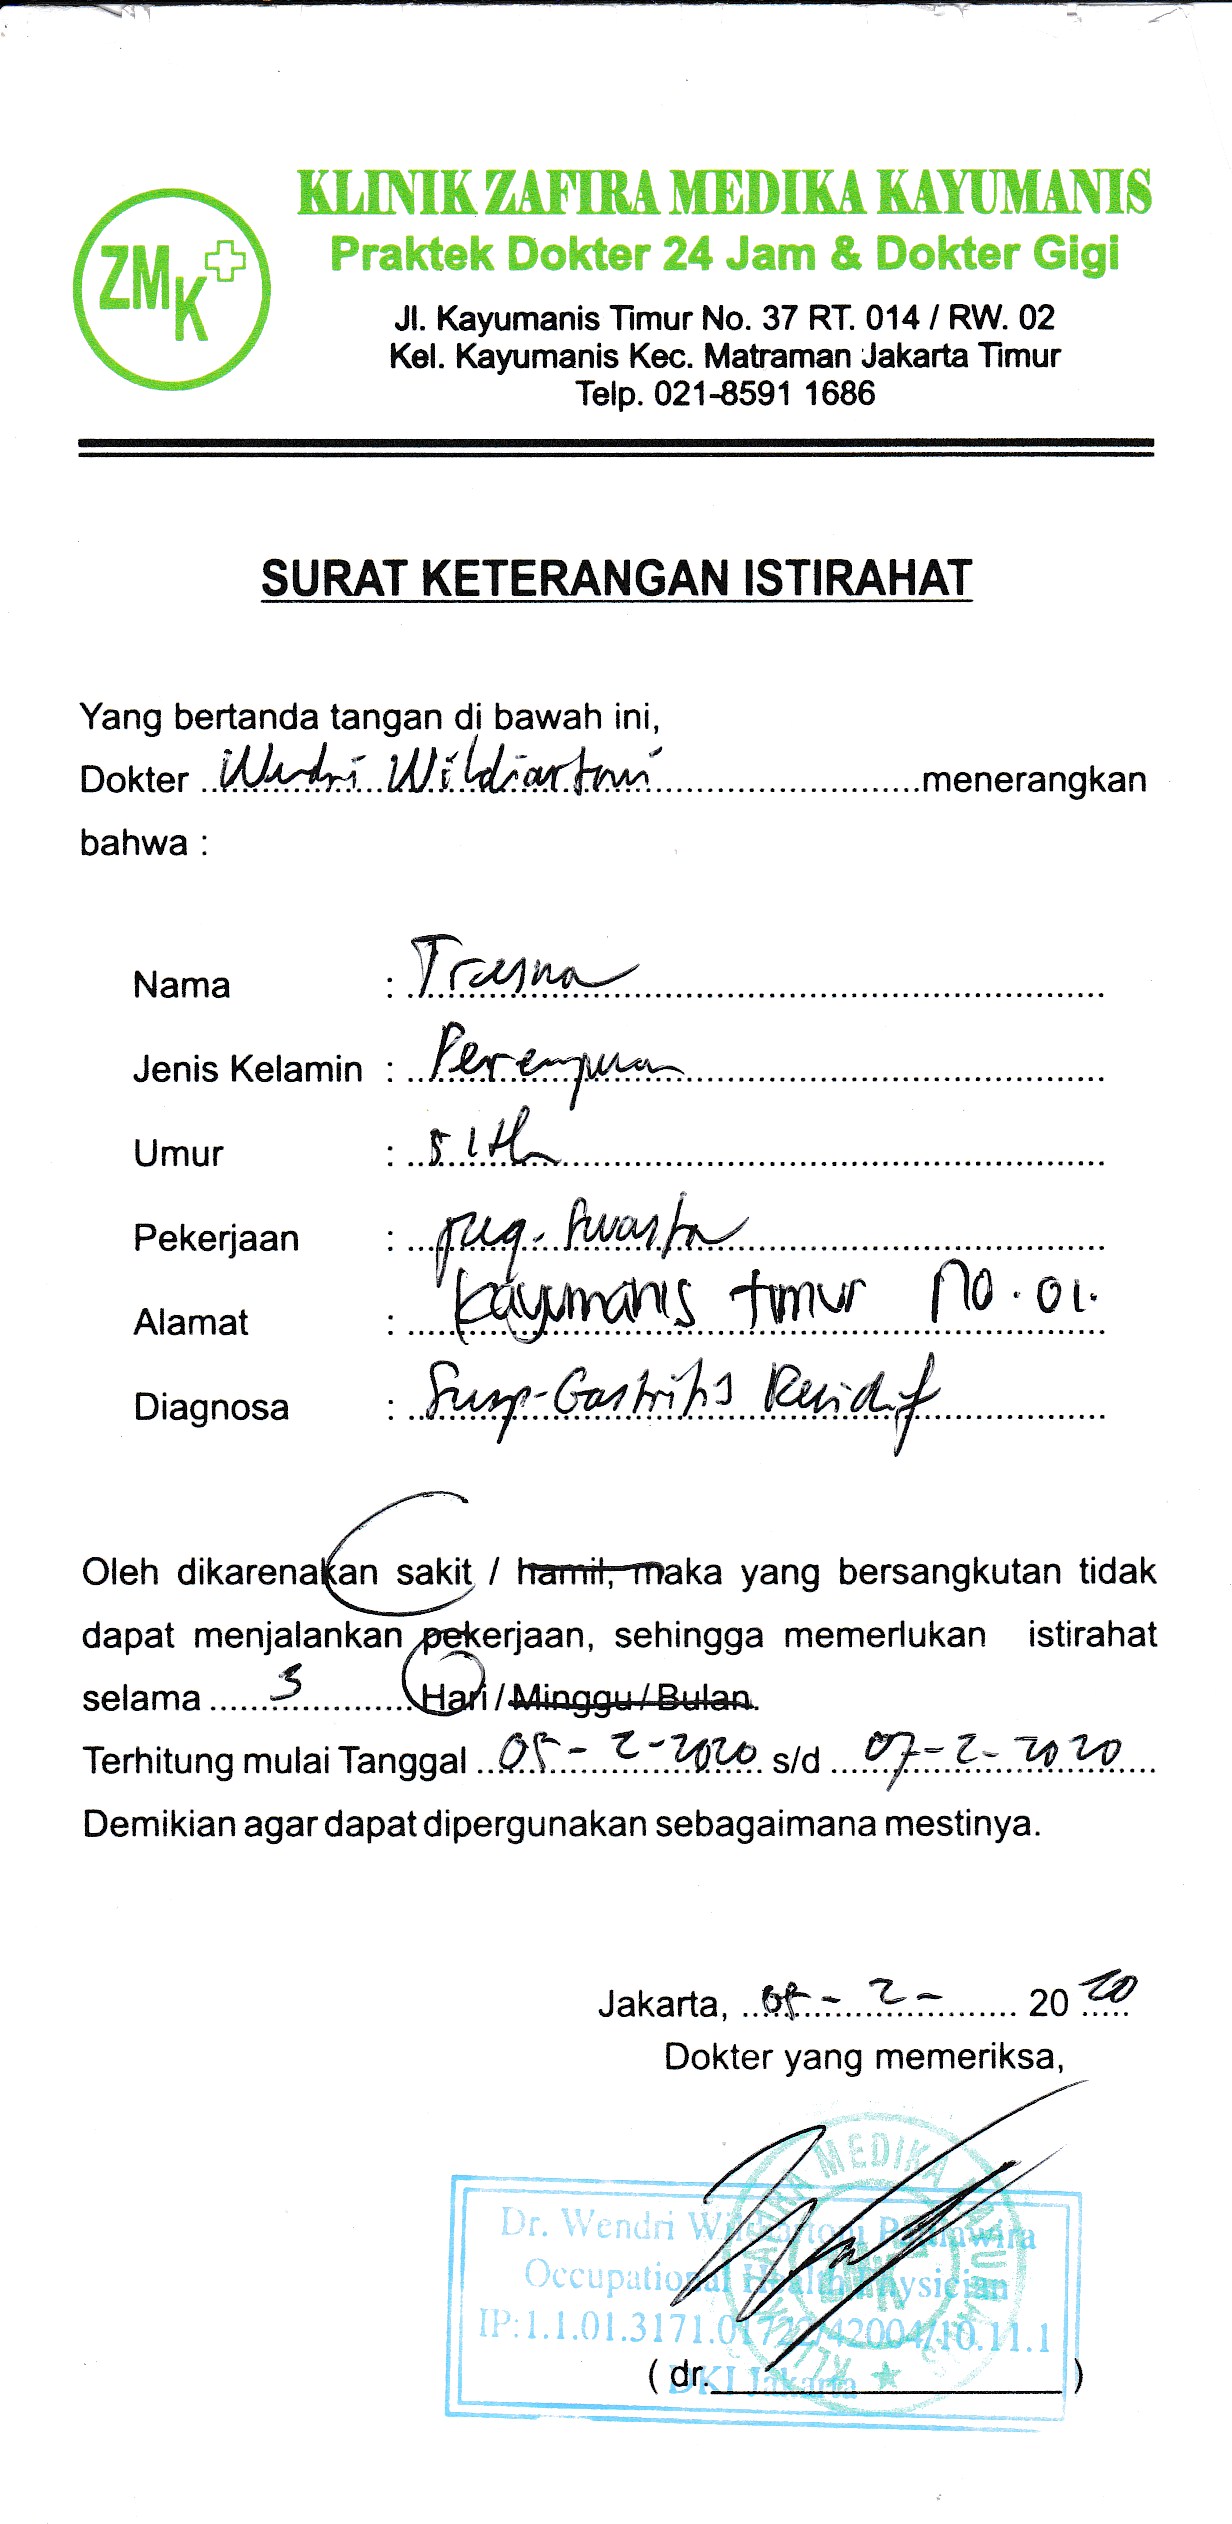 ZMK
KLINIK ZAFIRA MEDIKA KAYUMANIS
Praktek Dokter 24 Jam & Dokter Gigi
Jl. Kayumanis Timur No. 37 RT. 014 / RW. 02
Kel. Kayumanis Kec. Matraman Jakarta Timur
Telp. 021-8591 1686
SURAT KETERANGAN ISTIRAHAT
Yang bertanda tangan di bawah ini,
Dokter Wendri Wildiartoni menerangkan
bahwa :
Nama : Tresna
Jenis Kelamin : Perempuan
Umur : 51 th
Pekerjaan : peg. Swasta
Alamat : kayumanis timur no. 01.
Diagnosa : Susp-Gastritis Residif
Oleh dikarenakan sakit / hamil, maka yang bersangkutan tidak
dapat menjalankan pekerjaan, sehingga memerlukan istirahat
selama 3 Hari / Minggu / Bulan.
Terhitung mulai Tanggal 05-2-2020 s/d 07-2-2020
Demikian agar dapat dipergunakan sebagaimana mestinya.
Jakarta, 05-2- 2020
Dokter yang memeriksa,
Dr. Wendri
Occupational Health Physician
IP:1.1.01.3171.01722/42004/10.11.1
DKI Jakarta
(dr. )